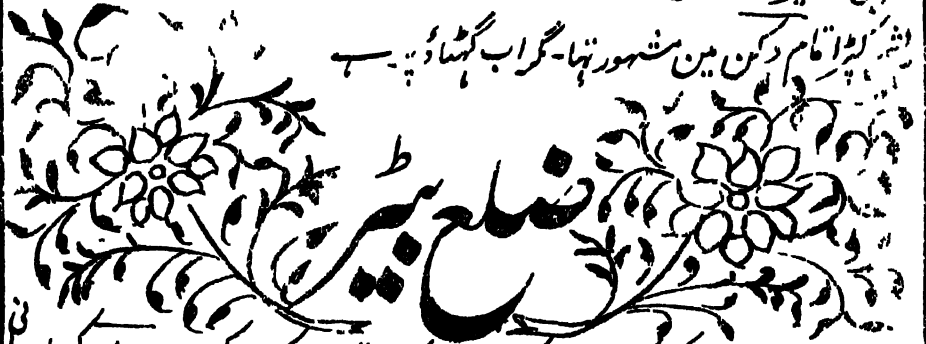 کپڑا تمام دکن مین مشہور تہا۔ گر اب گہٹاؤ پر ہے
ضلع بیڑ